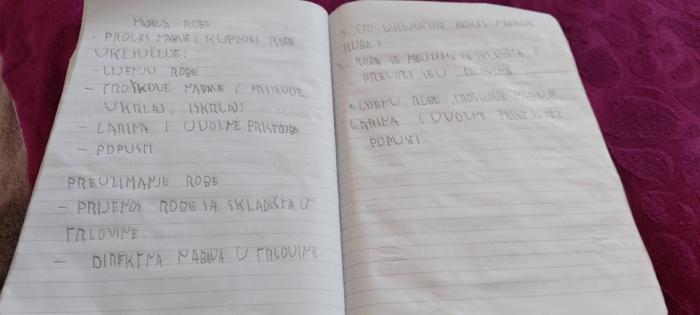 NABAVA ROBE
· PROCES NABAVE ( KUPNJE) ROBE
UKLJUČUJE:
- CIJENU ROBE
- TROŠKOVE NABAVE ( PRIJEVOZ,
UKRCAJ, ISKRCAJ)
- CARINA I UVOZNE PRISTOJBE
- POPUSTI
PREUZIMANJE ROBE
- PRIJENOS ROBE SA SKLADIŠTA U
TRGOVINE
- DIREKTNA NABAVA U TRGOVINE
1. ŠTO UKLJUČUJE PROCES NABAVE
ROBE?
2. ROBA SE PREUZIMA SA SKLADIŠTA I
PREVOZI SE U TRGOVINE
1. CIJENU ROBE, TROŠKOVE NABAVE,
CARINA I UVOZNE PRISTOJBE,
POPUSTI